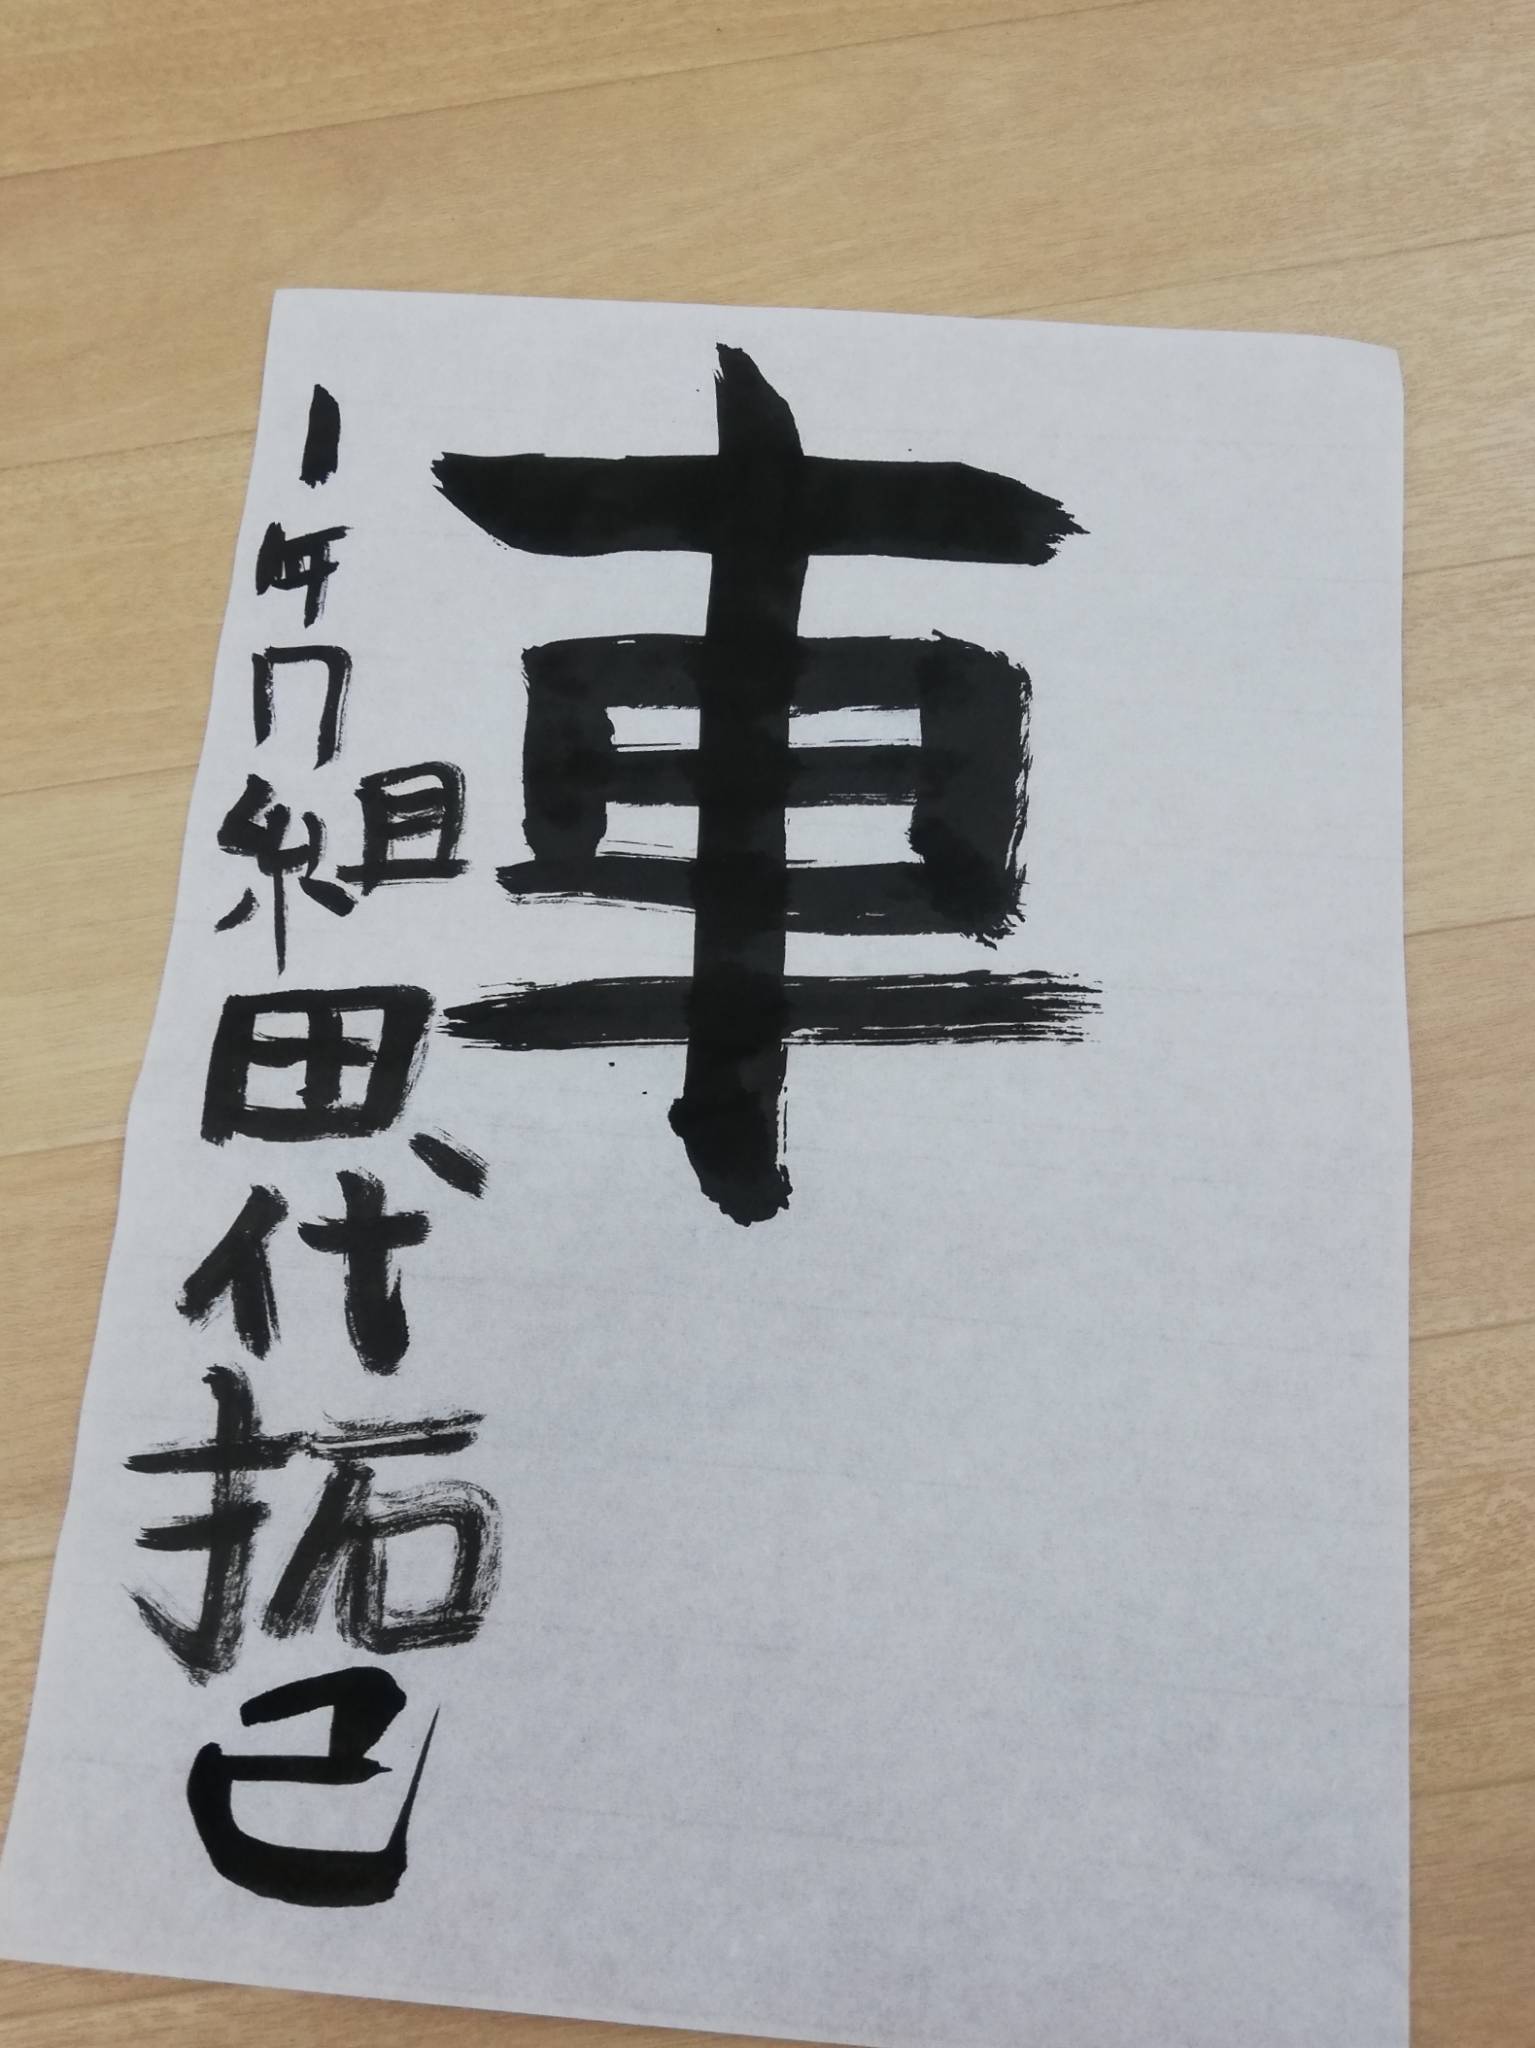 車
1年7組田代拓己